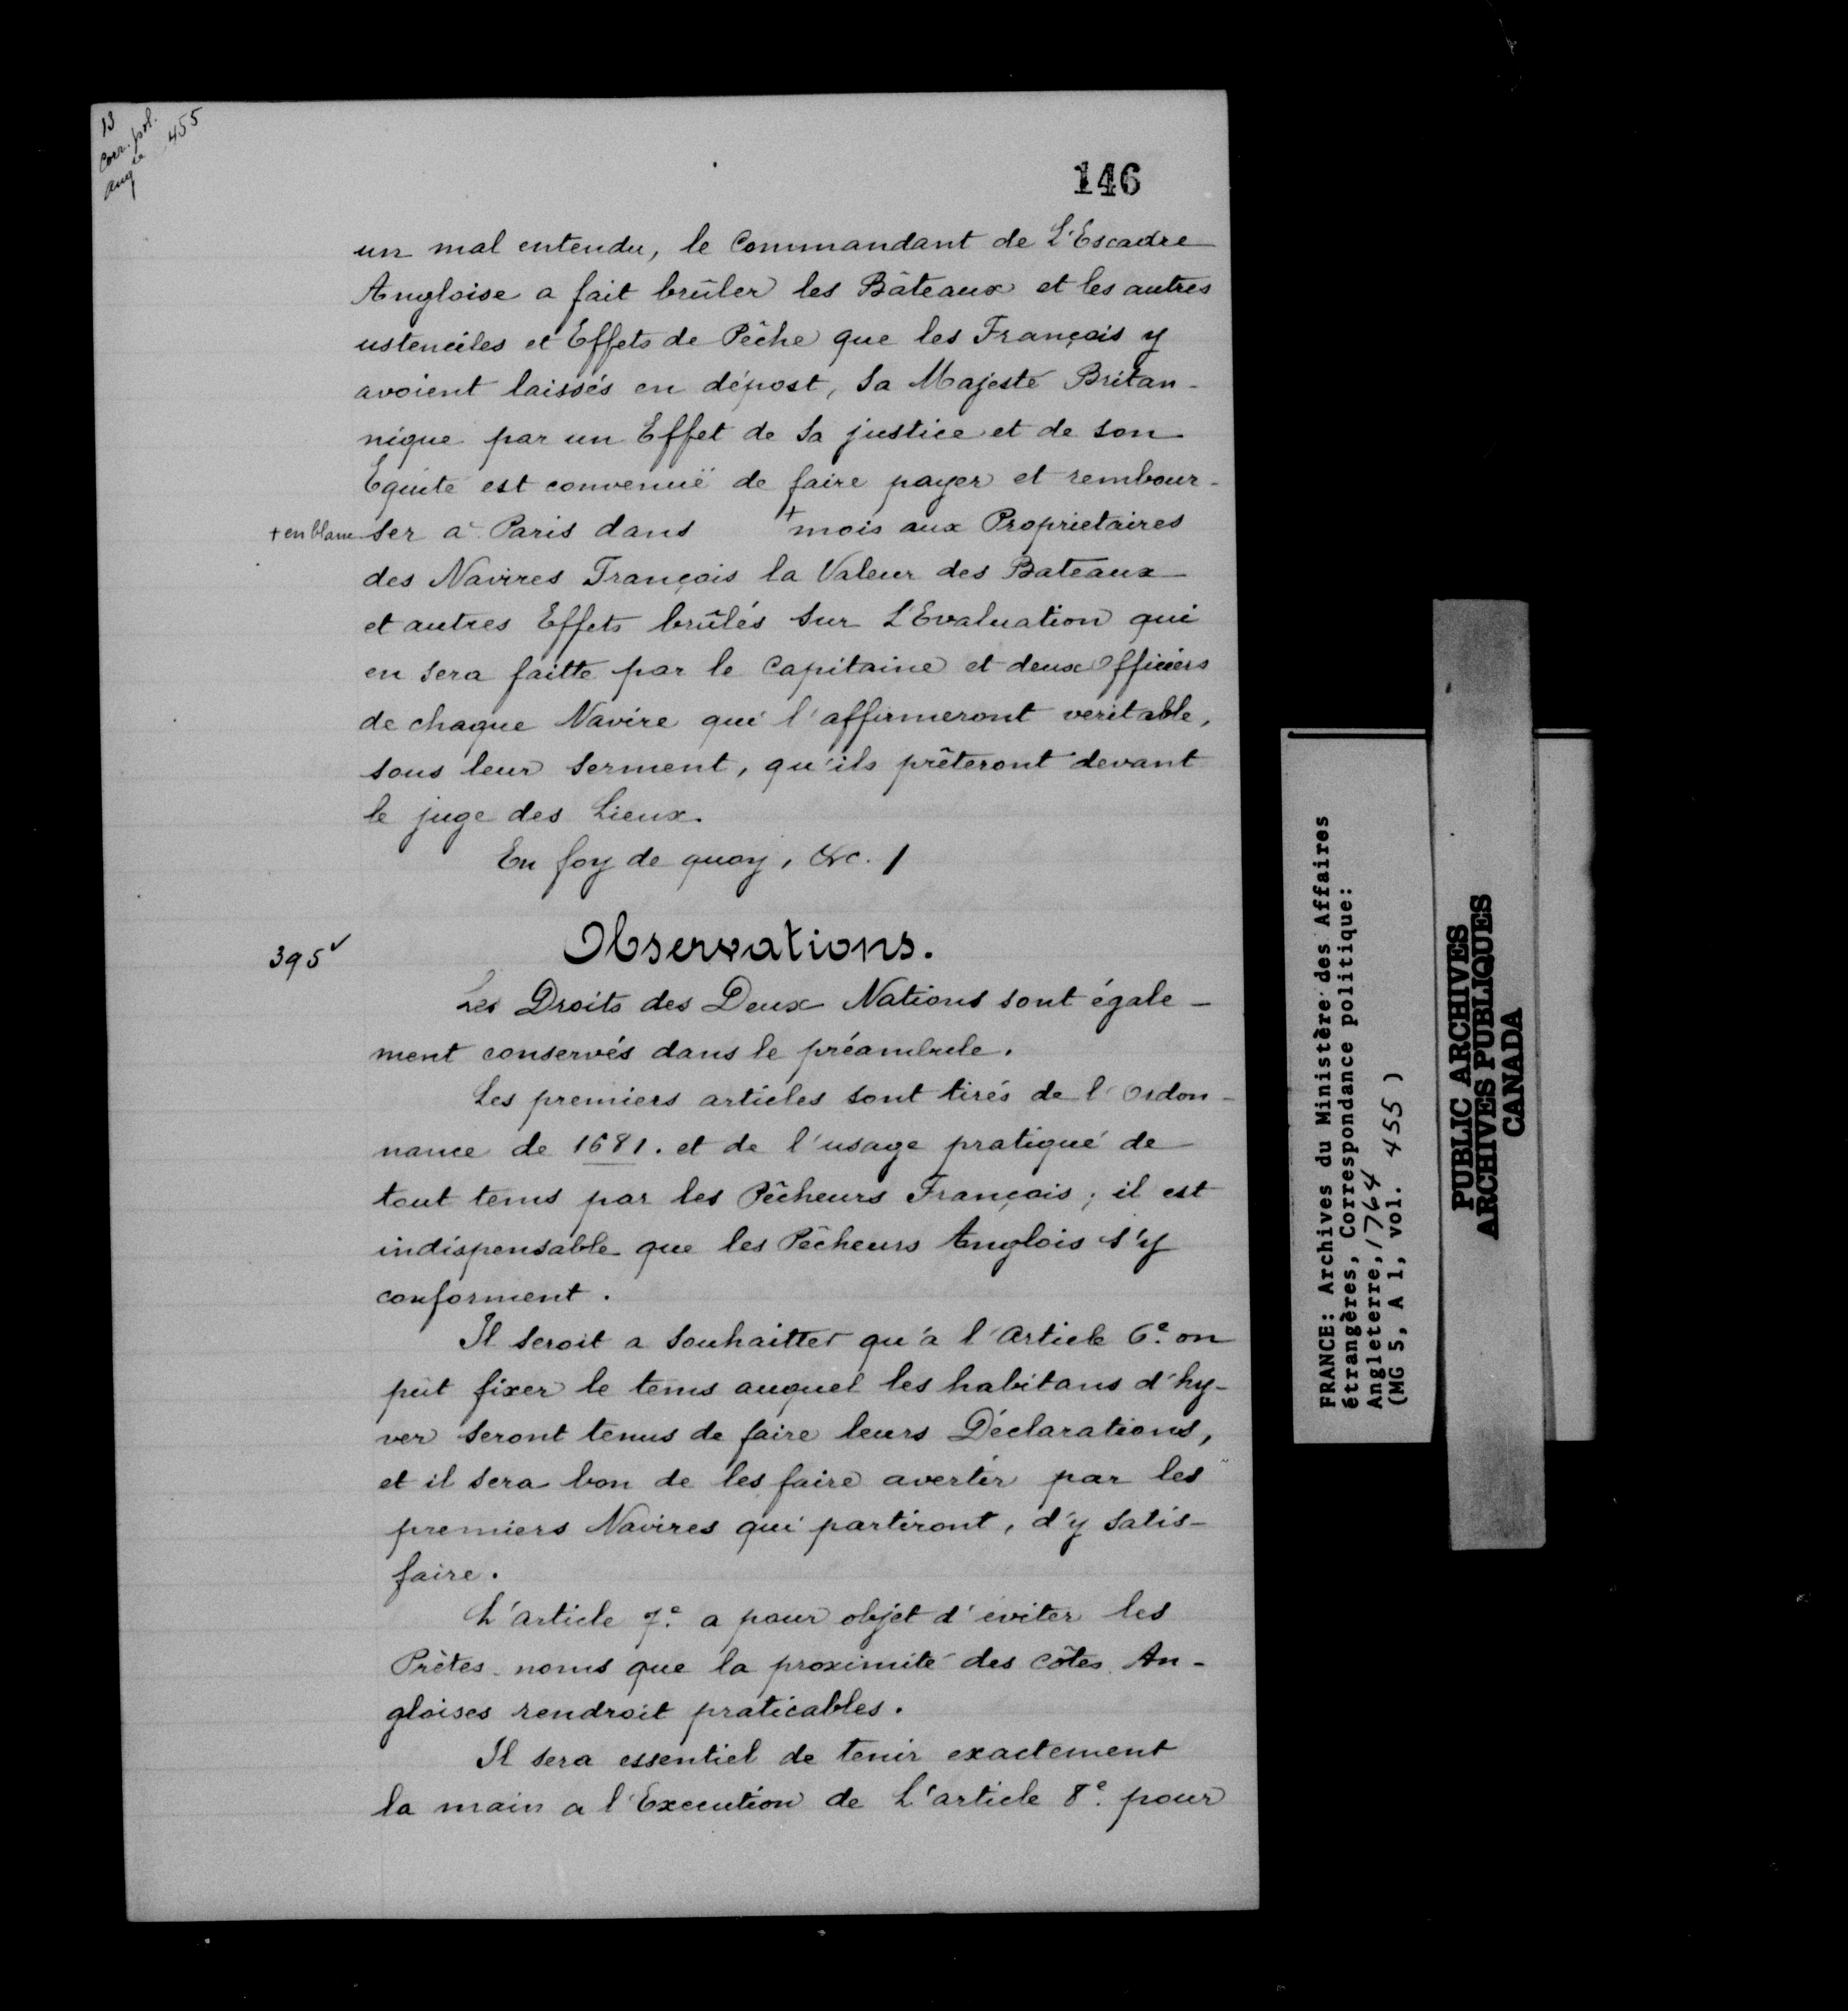 13
Corr. pol.
Ang re 455
146
un mal entendu, le Commandant de L'Escadre
Angloise a fait brûler les Bâteaux et les autres
ustenciles et Effets de Pêche que les François y
avoient laissés en dépost, Sa Majesté Britan-
nique par un Effet de Sa justice et de son
Equité est convenuë de faire payer et rembour-
+ en blanc
ser à Paris dans + mois aux Proprietaires
des Navires François la Valeur des Bateaux
et autres Effets brûlés sur L'Evaluation qui
en sera faitte par le Capitaine et deux Officiers
de chaque Navire qui l'affirmeront veritable,
sous leur serment, qu'ils prêteront devant
le juge des Lieux.
En foy de quoy, &c. /
Observations.
395v
Les Droits des Deux Nations sont égale-
ment conservés dans le préambule.
Les premiers articles sont tirés de l'ordon-
nance de 1681. et de l'usage pratiqué de
tout tems par les Pêcheurs François; il est
indispensable que les Pêcheurs Anglois s'y
conforment.
Il seroit a souhaitter qu'à l'Article 6e. on
put fixer le tems auquel les habitans d'hy-
ver seront tenus de faire leurs Déclarations,
et il sera bon de les faire avertir par les
premiers Navires qui partiront, d'y satis-
faire.
L'article 7e. a pour objet d'éviter les
Prètes-noms que la proximité des côtes An-
gloises rendroit praticables.
Il sera essentiel de tenir exactement
la main a l'Execution de L'article 8e. pour
FRANCE: Archives du Ministère des Affaires
étrangères, Correspondance politique:
Angleterre, 1764
(MG 5, A 1, vol. 455 )
PUBLIC ARCHIVES
ARCHIVES PUBLIQUES
CANADA